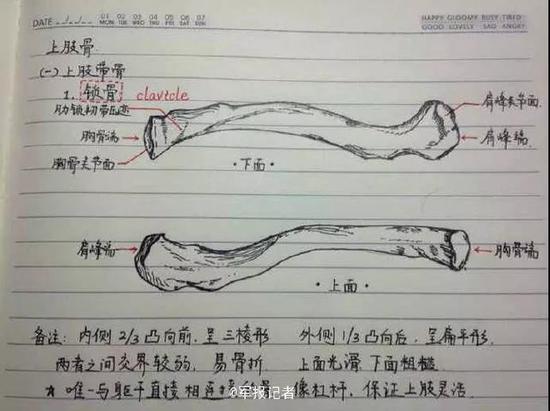 DATE / /
01 02 03 04 05 06 07
MON TUE WED THU FRI SAT SUN
HAPPY GLOOMY BUSY TIRED
GOOD LOVELY SAD ANGRY
上肢骨
(一)上肢带骨
1. 锁骨 clavicle
肋锁韧带压迹
胸骨端
胸骨关节面
肩峰关节面
肩峰端
·下面·
肩峰端
胸骨端
·上面·
备注: 内侧 2/3 凸向前,呈三棱形 外侧 1/3 凸向后,呈扁平形,
两者之间交界较弱,易骨折 上面光滑,下面粗糙
唯一与躯干直接相连接 像杠杆,保证上肢灵活
@军报记者